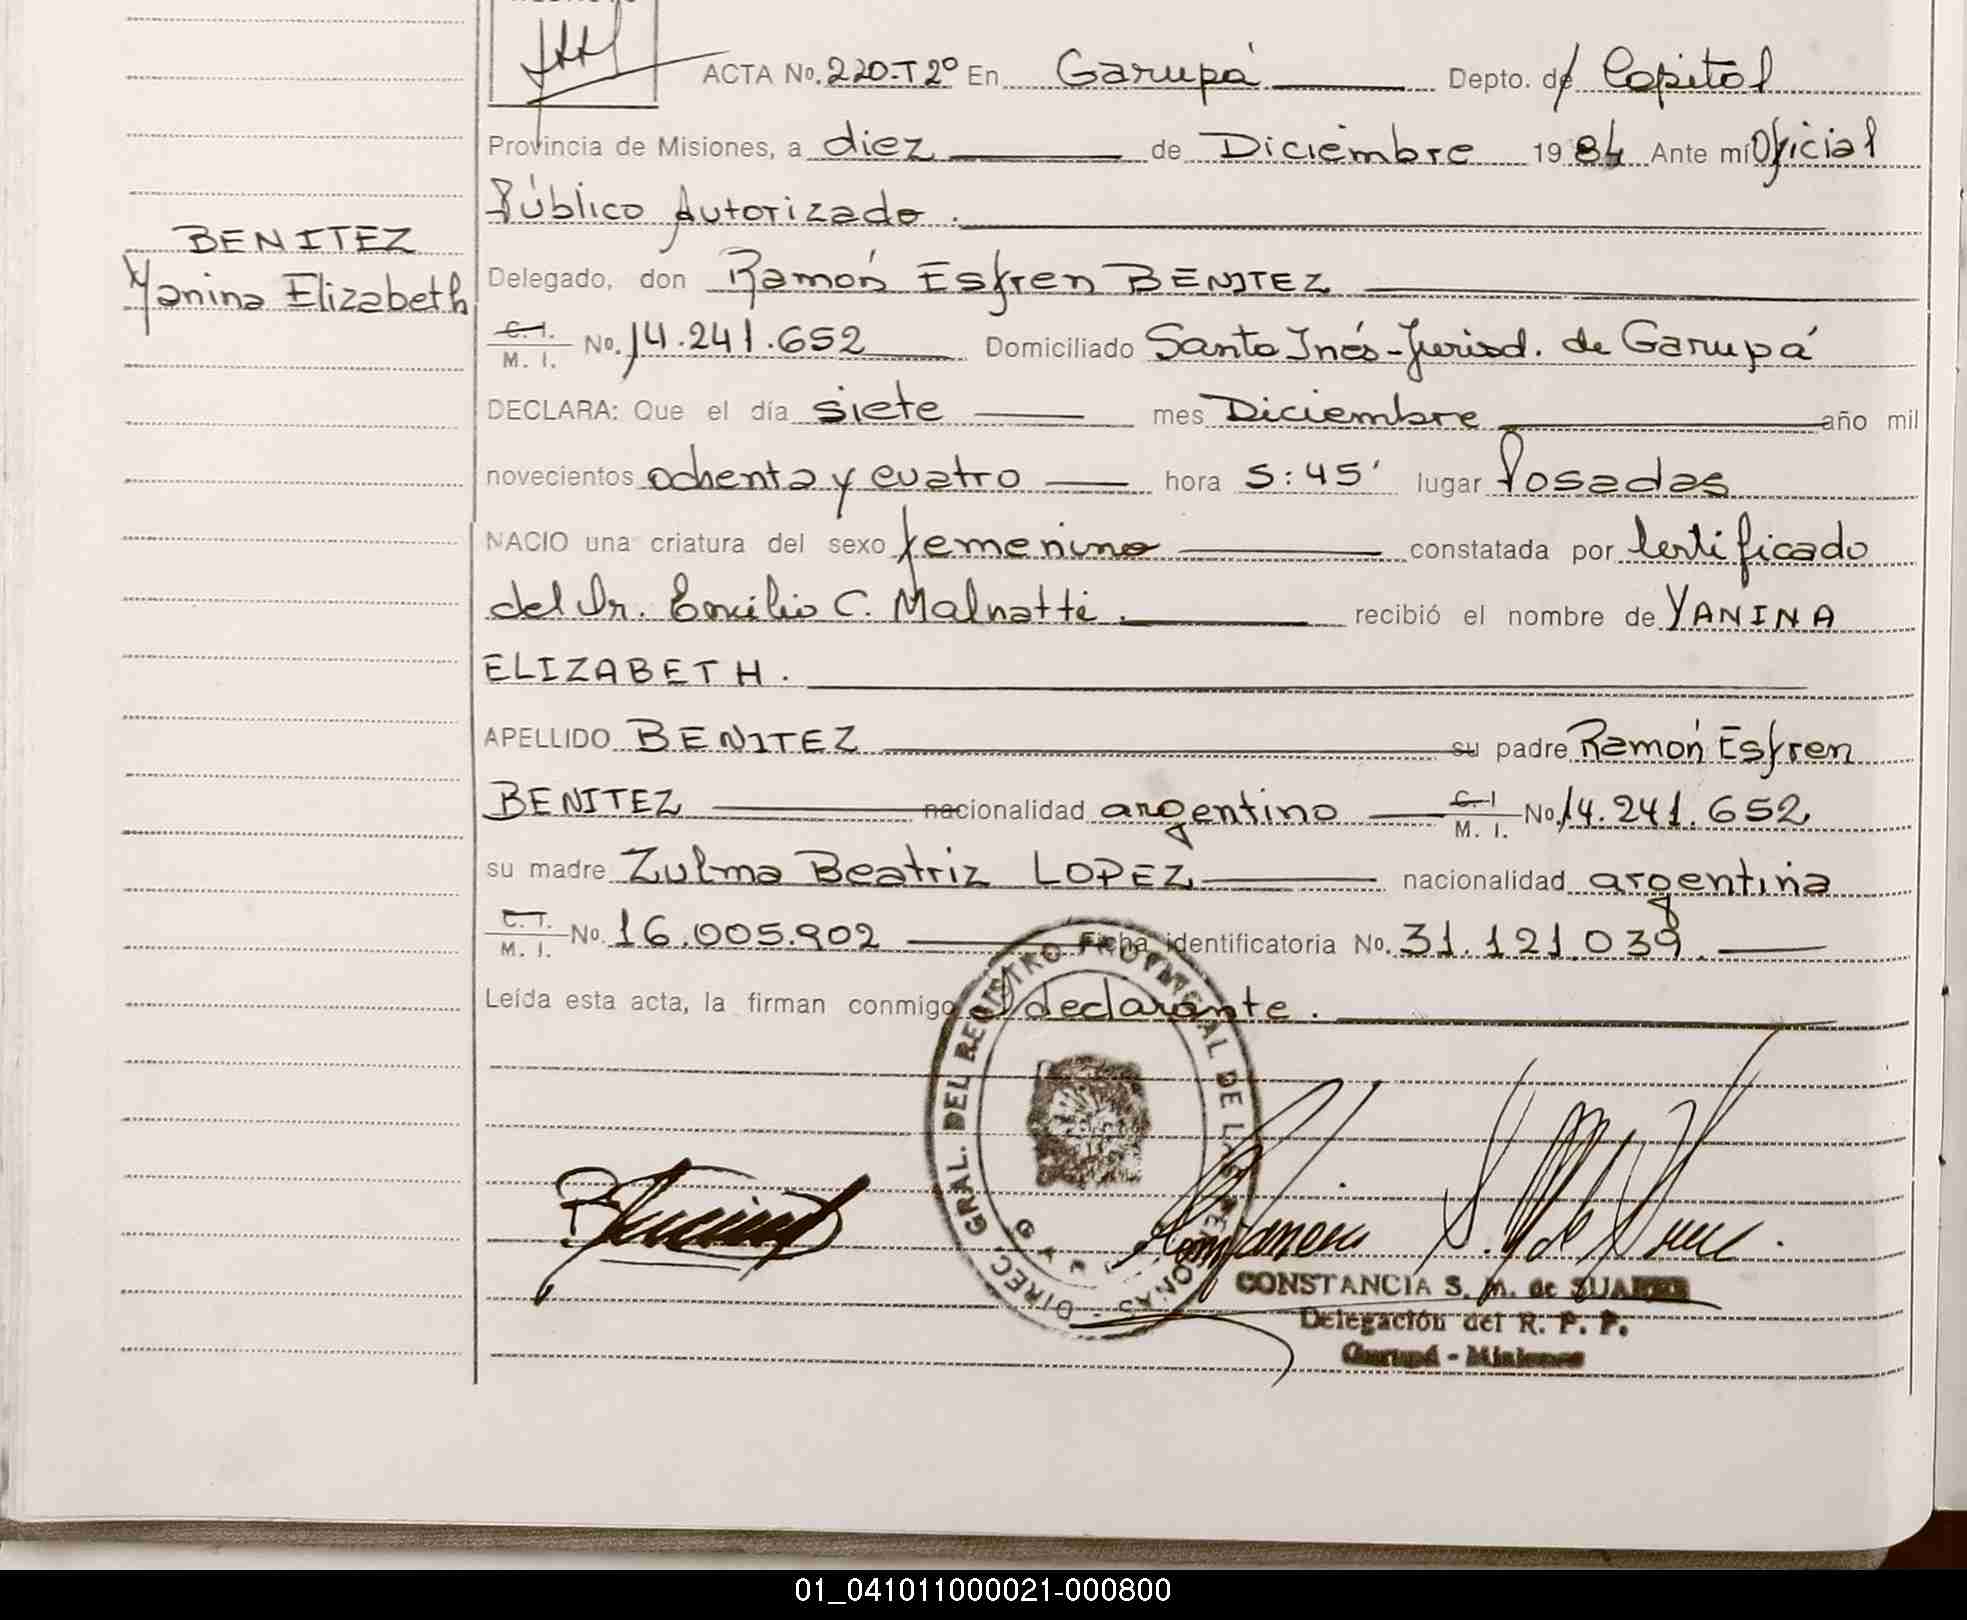 ACTA No. 220-T2º En Garupá Depto. de Capital
Provincia de Misiones, a diez de Diciembre 1984 Ante mí Oficial
Público Autorizado.
BENITEZ
Yanina Elizabeth
Delegado, don Ramón Esfren BENITEZ
C. I.
M. I. No. 14.241.652 Domiciliado Santa Inés-Jurisd. de Garupá
DECLARA: Que el día siete mes Diciembre año mil
novecientos ochenta y cuatro hora 5:45' lugar Posadas
NACIO una criatura del sexo femenino constatada por Certificado
del Dr. Emilio C. Malnatti. recibió el nombre de YANINA
ELIZABETH.
APELLIDO BENITEZ su padre Ramón Esfren
BENITEZ nacionalidad argentino C. I. M. I. No. 14.241.652
su madre Zulma Beatriz LOPEZ nacionalidad argentina
C. I. M. I. No. 16.005.902 Ficha identificatoria No. 31.121.039.
Leída esta acta, la firman conmigo el declarante.
DIREC. GRAL. DEL REGISTRO PROVINCIAL DE LAS PERSONAS
CONSTANCIA S. M. de SUAREZ
Delegación del R. P. P.
Garupá - Misiones
01_041011000021-000800